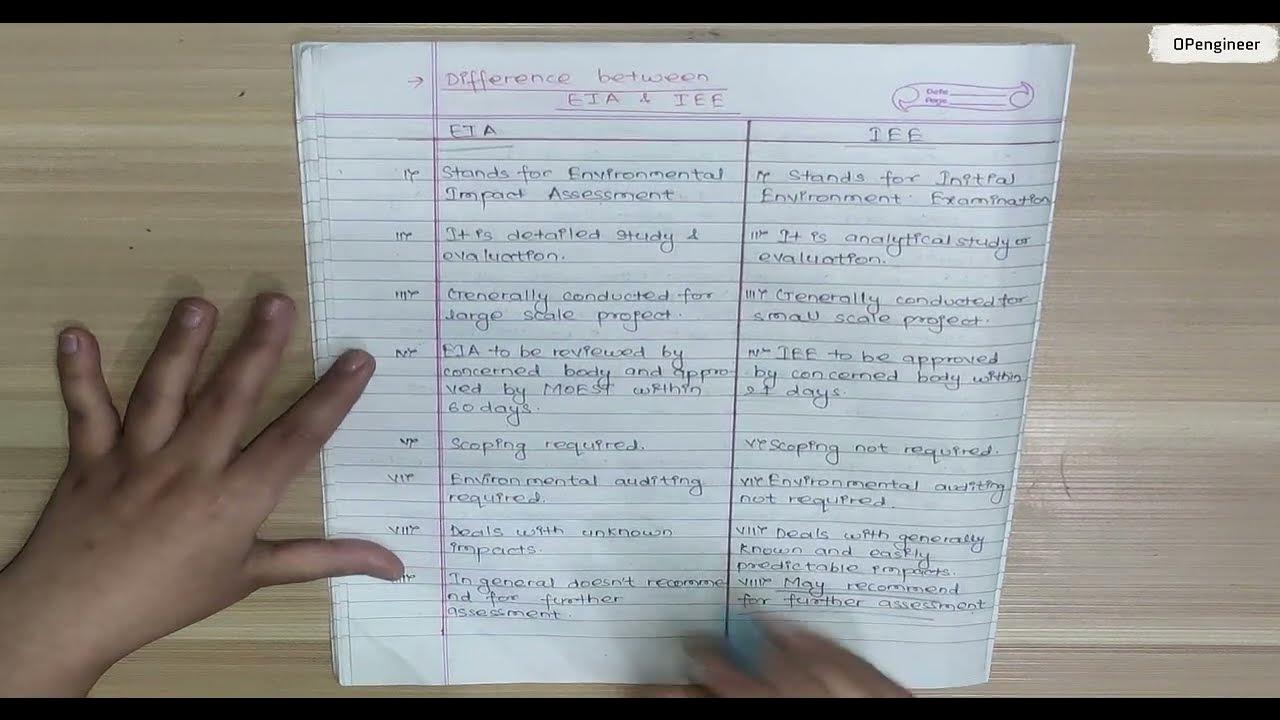 OPengineer
→ Difference between
EIA & IEE
Date
Page
EIA
IEE
i) Stands for Environmental
Impact Assessment.
i) Stands for Initial
Environment Examination
ii) It is detailed study &
evaluation.
ii) It is analytical study or
evaluation.
iii) Generally conducted for
large scale project.
iii) Generally conducted for
small scale project.
iv) EIA to be reviewed by
concerned body and appro-
ved by MOEST within
60 days.
iv) IEE to be approved
by concerned body within
21 days.
v) Scoping required.
v) Scoping not required.
vi) Environmental auditing
required.
vi) Environmental auditing
not required.
vii) Deals with unknown
impacts.
vii) Deals with generally
known and easily
predictable impacts.
In general doesn't recomme
nd for further
assessment.
viii) May recommend
for further assessment